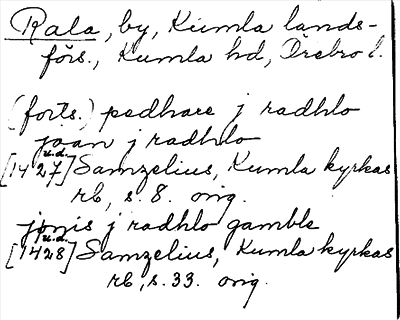 Rala, by, Kumla lands-
förs., Kumla hd, Örebro l.
(forts.) pedhare j radhlo
joan j radhlo
u.d.
[1427] Samzelius, Kumla kyrkas
rb, s. 8. orig.
jönis j radhlo gamble
u.d.
[1428] Samzelius, Kumla kyrkas
rb, s. 33. orig.